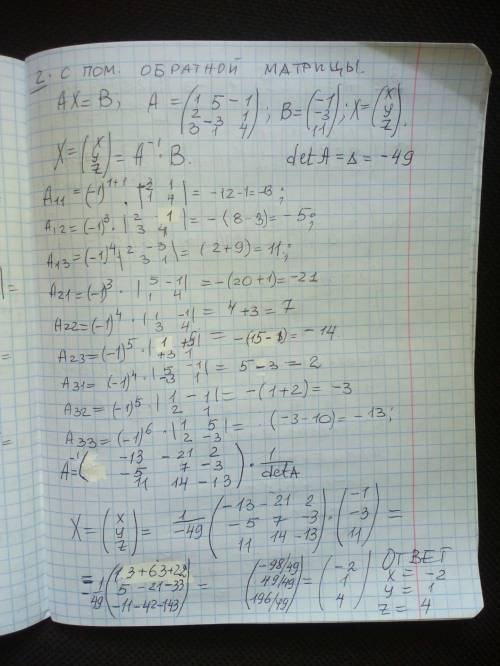 2. С ПОМ. ОБРАТНОЙ МАТРИЦЫ.
AX = B; A = (1 5 -1; 2 -3 1; 3 1 4); B = (-1; -3; 11); X = (x; y; z).
X = (x; y; z) = A⁻¹ · B. det A = Δ = -49
A11 = (-1)¹⁺¹ · |-3 1; 1 4| = -12-1 = -13;
A12 = (-1)³ · |2 1; 3 4| = -(8-3) = -5;
A13 = (-1)⁴ |2 -3; 3 1| = (2+9) = 11;
A21 = (-1)³ · |5 -1; 1 4| = -(20+1) = -21
A22 = (-1)⁴ · |1 -1; 3 4| = 4+3 = 7
A23 = (-1)⁵ · |1 +5; +3 1| = -(15-1) = -14
A31 = (-1)⁴ · |5 -1; -3 1| = 5-3 = 2
A32 = (-1)⁵ · |1 -1; 2 1| = -(1+2) = -3
A33 = (-1)⁶ · |1 5; 2 -3| = (-3-10) = -13;
A⁻¹ = (-13 -21 2; -5 7 -3; 11 14 -13) · 1/det A
X = (x; y; z) = 1/-49 (-13 -21 2; -5 7 -3; 11 14 -13) · (-1; -3; 11) =
= -1/49 (13+63+22; 5 -21-33; -11-42-143) = (-98/49; 49/49; 196/49) = (-2; 1; 4)
ОТВЕТ
x = -2
y = 1
z = 4